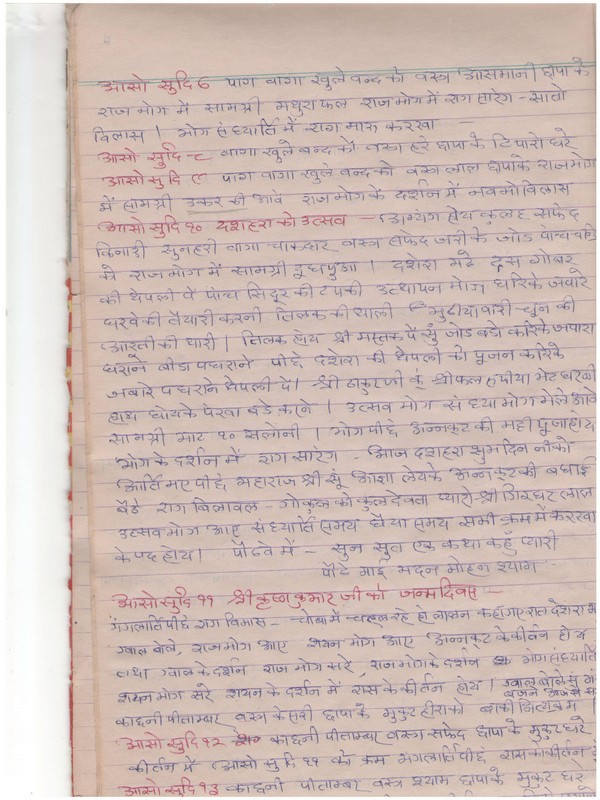 आसो सुदि ६ पाग वागा खुले बन्द को वस्त्र आसमानी छापा के
राजभोग में सामग्री मथुराफल राजभोग में राग सारंग - सातो
विलास । भोग संध्यार्ति में राग मारू करखा —
आसो सुदि - ८ वागा खुले बन्द को वस्त्र हरे छापा के टिपारो धरे
आसो सुदि ९ पाग वागा खुले बन्द को वस्त्र लाल छापा के राजभोग
में सामग्री उकर की आवे राजभोग के दर्शन में नवमो विलास
आसो सुदि १० दशहरा को उत्सव — अभ्यंग होय कुलह सफेद
किनारी सुनहरी वागा चाकदार वस्त्र सफेद जरी के जोड पांच
को राजभोग में सामग्री दूधपुआ । दशेरा मंडे दस गोबर
की थेपली पे पांच सिंदूर की टपकी उत्थापन भोग धरिके जवारे
धरवे की तैयारी करनी तिलक की थाली मुठीया वारी चून की
आरती की थारी । तिलक होय श्री मस्तक पे सुं जोड बडे करिके जवारा
धराने बीडा पधराने पीछे दशेरा की थेपली को पूजन करिके
जवारे पधराने थेपली पें । श्री ठाकुरजी कुं श्रीफल रुपीया भेट धरनी
हाथ धोयके पेरवा बडे करने । उत्सव भोग संध्या भोग भेले आवे
सामग्री माट १० सलोनी । भोग पीछे अन्नकूट की भट्टी पूजा होय
भोग के दर्शन में राग सारंग - आज दशहरा शुभ दिन नीको
आर्ति भए पीछे महाराज श्री सूं आज्ञा लेयके अन्नकूट की बधाई
बैठे राग बिलावल - गोकुल को कुल देवता प्यारो श्री गिरधर लाल
उत्सव भोग आए संध्यार्ति समय शैया समय सभी क्रम में करखा
के पद होय । पोढवे में — सुन सुत एक कथा कहुँ प्यारी
पोढे माई मदन मोहन श्याम
आसो सुदि ११ श्री कृष्णकुमार जी को जन्मदिवस —
मंगलार्ति पीछे राग विभास - हो लालन कहां गए रात दशेरा
ग्वाल बोले, राजभोग आए शयन भोग आए अन्नकूट के कीर्तन होय
तथा ग्वाल के दर्शन राजभोग सरे, राजभोग के दर्शन भोग संध्यार्ति
शयन भोग सरे शयन के दर्शन में रास के कीर्तन होय ।
काछनी पीताम्बर वस्त्र केसरी छापा के मुकुट हीरा को बाकी नित्यक्रम ।
आसो सुदि १२ काछनी पीताम्बर वस्त्र सफेद छापा के मुकुट धरे
कीर्तन में आसो सुदि ११ को क्रम मंगलार्ति पीछे रास के कीर्तन
आसो सुदि १३ काछनी पीताम्बर वस्त्र श्याम छापा के मुकुट धरे